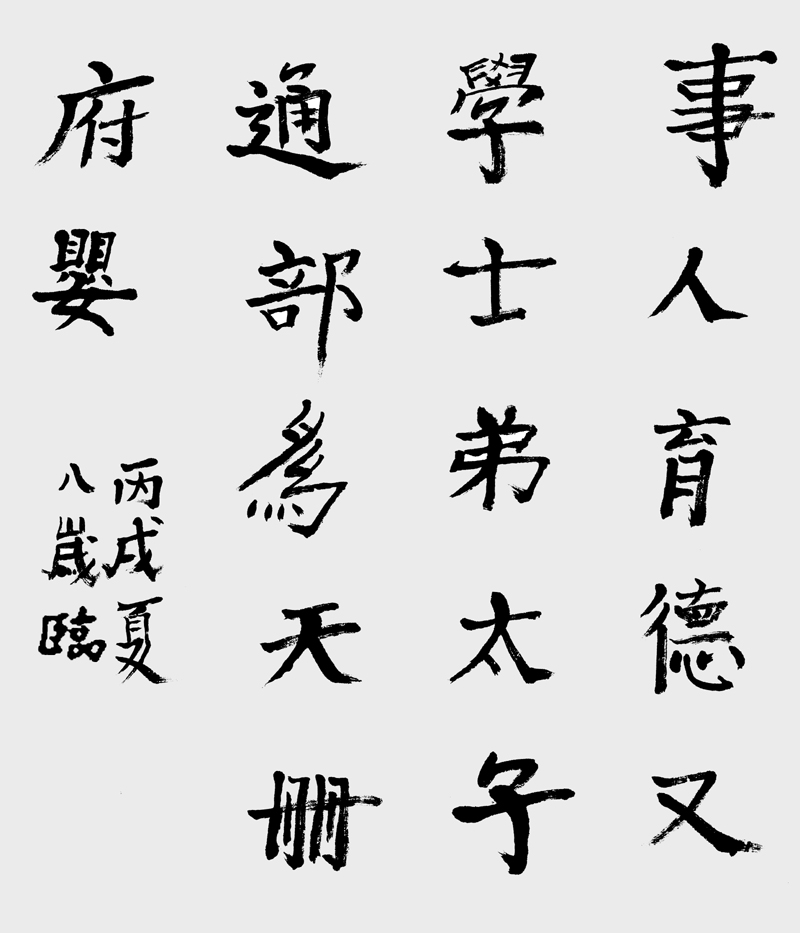 事人育德又
學士弟太子
通部為天冊
府嬰
丙戌夏
八歲臨